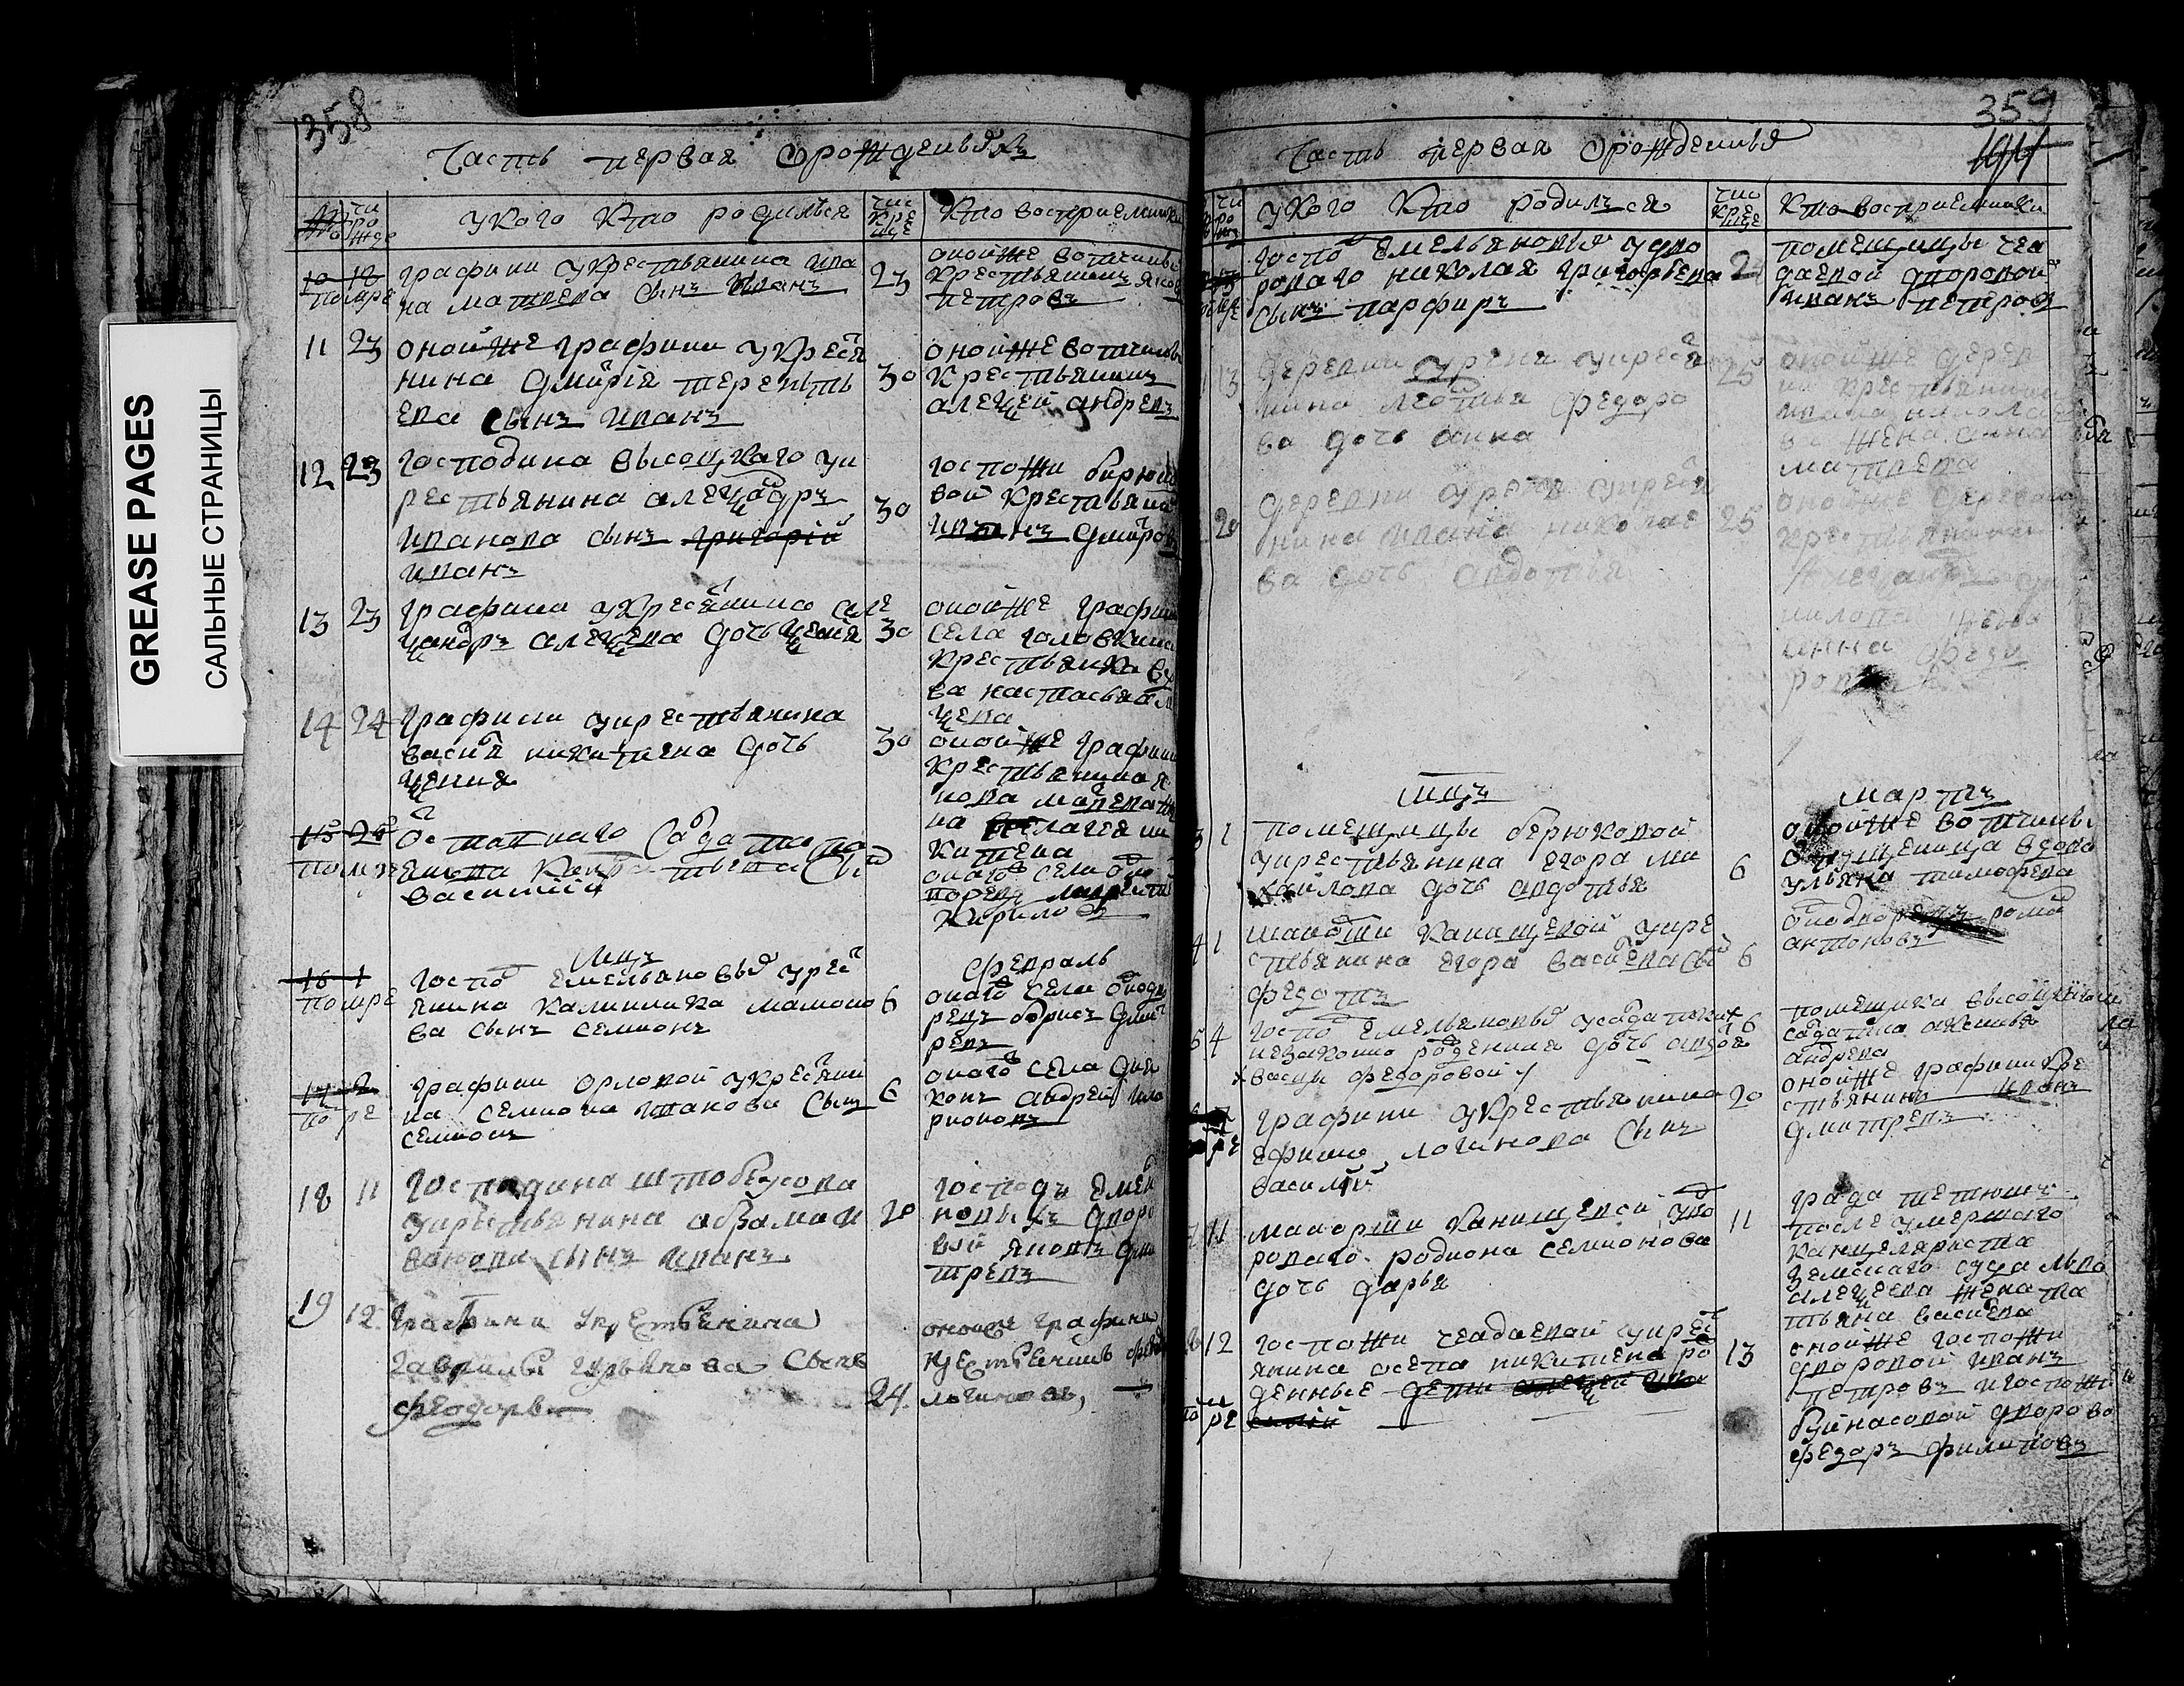 GREASE PAGES
САЛЬНЫЕ СТРАНИЦЫ
1358
Часть первая орожденыяхъ
чи рожде
укого кто родилься
чис креще
Кто восприемники
10 18
помре
графини укрестьянина ива
на матвева сынъ иванъ
23
оной же вотчины
крестьянинъ яков
петровъ
11 23
оной же графини укрест
нина дмитрія теренть
ева сынъ иванъ
30
оной же вотчины
крестьянинъ
алеѯей андревъ
12 23
господина высоцкаго ук
рестьянина алеѯандръ
иванова сынъ григорій
иванъ
30
госпожи бирюко
вой крестьянин
иванъ дмитров
13 23
графини укрестьянина але
ѯандръ алеѯева дочь ѯения
30
оной же графини
села головкина
крестьянка в
ва настасья ал
ѯева
14 24
графини укрестьянина
васил никитина дочь
ѯения
30
оной же графини
крестьянина я
кова матвева же
на пелагея ни
китева
15 25
помре
василий
оного села одно
дворец
Кирилов
мцъ Февраль
16 1
помре
госпо емельяновых укрест
янина калинника мамоно
ва сынъ семионъ
6
оного села однодво
рецъ борисъ дмит
ревъ
17 2
по ре
графини орловой укрестьянин
на семиона шанова сынъ
семионъ
6
оного села дья
конъ андрей ила
рионовъ
18 11
господина штобеусова
укрестьянина абрама и
ванова сынъ иванъ
20
господъ емель
новыхъ дворо
вой яковъ дми
тревъ
19 12
графини укрестьянина
гаврилы гурьянова сынъ
феодоръ
24.
оной же графини
крестьянинъ
логиновъ,
359
191
Часть первая орожденья
укого кто родился
чис креще
Кто восприемники
госпо емельяновых удво
роваго николая григорьева
сынъ парфиръ
2
помещицы чеа
даевой дворовой
иванъ петров
13
деревни урени укрест
нина леонтья федоро
ва дочь анна
25
оной же дерев
ни крестьянина
ивана николае
ва жена анна
матвева
20
деревни урени укрест
нина ивана николае
ва дочь авдотья
25
оной же деревни
крестьянина
Алеѯандра
милова жена
анна федо
рова
мцъ мартъ
3 1
помещицы берюковой
укрестьянина егора ми
хайлова дочь авдотья
6
оной же вотчины
вдова
ульяна тимофева
4 1
маиорши канищевой укре
стьянина егора васильева сын
федотъ
6
однодворецъ рома
антоновъ
5 4
госпо емельяновых усадатских
незаконно рожденная дочь
васи федоровой
6
помещика высоцкаго
садатка аксинья
андрева
помре
графини укрестьянина
ефима логинова сынъ
василій
20
оной же графини кре
стьянинъ иванъ
дмитревъ
7 11
маиорши канищевой удво
роваго родиона семионова
дочь дарья
11
града тетюшъ
после умершаго
канцеляриста
земскаго суда льво
алеѯева жена та
тьяна василева
12
госпожи чеадаевой укрест
янина осепа никитина ро
денные дети алеѯей
13
оной же госпожи
дворовой иванъ
петровъ и госпожи
буйнасовой дворово
федоръ филиповъ